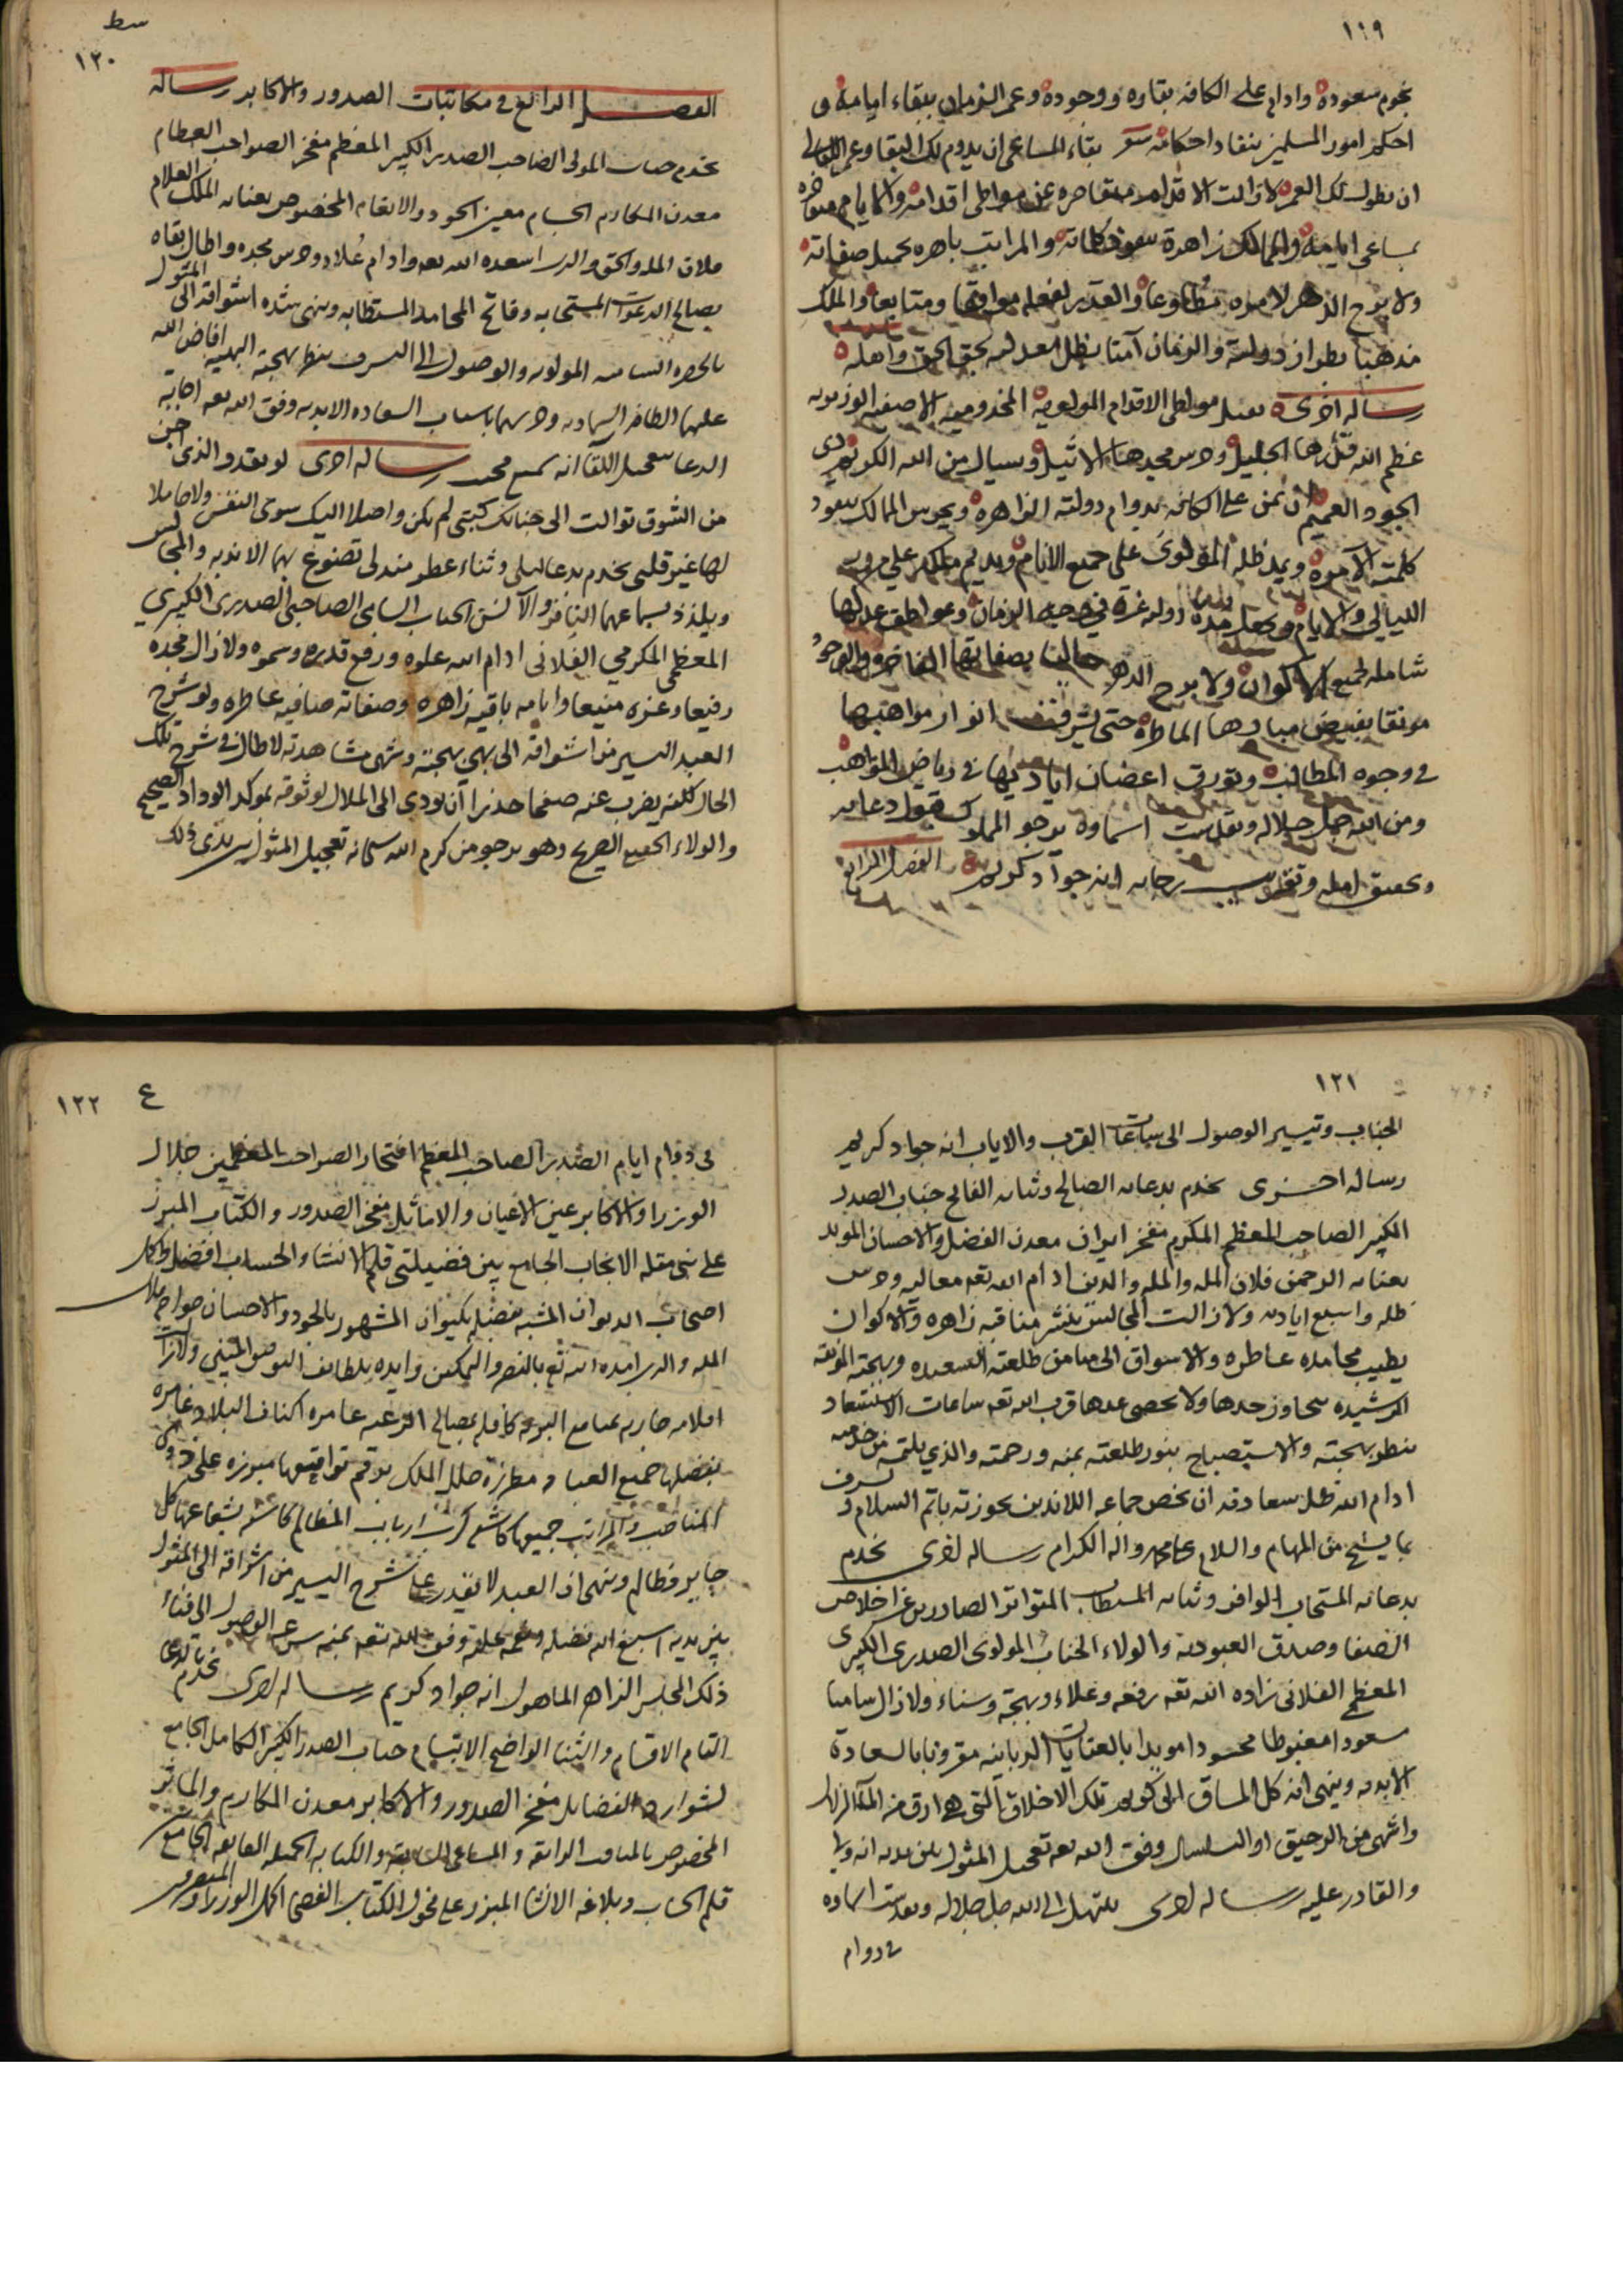 ١١٩
نجوم سعوده وادام على الكافه بقاوه ووجوده وعمر الزمان ببقاء ايامه و
احكم امور المسلمين بنفاد احكامه شعر بقاء المساعى ان يدوم لك البقا وعمر الليالى
ان يطول لك العمر لازالت الاقدام متقاصره عن مواطى اقدامه والايام
بمساعى ايامه والممالك زاهرة بنفوذ كلماته والمراتب باهره بجميل صفاته
ولا برح الدهر لاموره مطاوعا والقدر لفعله موافقا ومتابعا والملك
مذهبا بطراز دولته والزمان آمنا بظل معدلته بحق الحق واهله
رساله اخرى يقبل مواطى الاقدام المولويه المخدوميه الاصفيه الوزيريه
عظم الله قدرها الجليل وحرس مجدها الاثيل ويسال من الله الكريم ذى
الجود العميم ان يمن على الكافه بدوام دولته الزاهره ويحرس الممالك بنفوذ
كلمته الآمره ويمد ظله المولوى على جميع الانام ويديم ملكه على مرور
الليالى والايام ويجعل مدة دولته غرة فى جبهة الزمان وعواطف عدلها
شامله لجميع الاكوان ولا برح الدهر حاليا بصفاتها الفاخره والوجود
مونقا بفيض مبارها الماطره حتى يشرق انوار مواهبها
فى وجوه المطالب وتورق اعضان اياديها فى رياض المواهب
ومن الله جل جلاله وتقدست اسماوه يرجو المملوك قبول دعايه
وتحقيق امله وتقريب رجايه انه جواد كريم الفصل الرابع
سط
١٢٠
الفصل الرابع فى مكاتبات الصدور والاكابر رساله
يخدم جناب المولى الصاحب الصدر الكبير المعظم مفخر الصواحب العظام
معدن المكارم الجسام معين الجود والانعام المخصوص بعنايه الملك العلام
فلان المله والحق والدين اسعده الله تعه وادام علاه وحرس مجده واطال بقاه
بصالح الدعوات المستجابه وفاتح المحامد المستطابه وينهى شده اشواقه الى المثول
بالحضره الساميه المولويه والوصول الى التشرف بنظر بهجته البهيه افاض الله
عليها الطافه السماويه وحرسها باسباب السعاده الابديه وفق الله تعه اجابه
الدعا بتعجيل اللقا انه سميع مجيب رساله اخرى لو بقدر الذى اجن
من الشوق توالت الى جنابك كتبى لم يكن واصلا اليك سوى النفس ولا حاملا
لها غير قلبى يخدم بدعا ليلى وثناء عطر مندلى تضوع بهما الانديه والمجالس
ويلذذ بسماعهما النافر والآنس الجناب السامى الصاحبى الصدرى الكبيرى
المعظمى المكرمى الفلانى ادام الله علوه ورفع قدره وسموه ولازال مجده
رفيعا وعزه منيعا وايامه باقيه زاهره وصفاته صافيه عاطره ولو شرح
العبد اليسير من اشواقه الى بهى بهجته وشهى مشاهدته لاطال فى شرح تلك
الحال لكنه يضرب عنه صفحا حذرا ان يودى الى الملال لوثوقه بموكد الوداد الصحيح
والولاء الحقيق الصريح وهو يرجو من كرم الله سبحانه تعجيل المثول بين يدى ذلك
١٢١
الجناب وتيسير الوصول الى ساعات القرب والاياب انه جواد كريم
رساله اخرى يخدم بدعايه الصالح وثنايه الفايح جناب الصدر
الكبير الصاحب المعظم المكرم مفخر ايران معدن الفضل والاحسان المويد
بعنايه الرحمن فلان المله والمله والدين ادام الله تعه معاليه وحرس
ظله واسبغ اياديه ولازالت المجالس بنشر مناقبه زاهره والاكوان
بطيب محامده عاطره والاشواق الى ميامن طلعته السعيده وبهجته المونقه
الرشيده يتجاوز حدها ولا يحصى عدها قرب الله تعه ساعات الاستسعاد
بنظر بهجته والاستصباح بنور طلعته بمنه ورحمته والذى يلتمسه من خدمته
ادام الله ظل سعادته ان يخص جماعه اللائذين بحوزته باتم السلام ويشرف
بما يسنح من المهام والسلام على محمد واله الكرام رساله اخرى يخدم
بدعايه المستجاب الوافر وثنايه المستطاب المتواتر الصادرين عن اخلاص
الصفا وصدق العبوديه والولاء الجناب المولوى الصدرى الكبيرى
المعظمى الفلانى زاده الله تعه رفعه وعلاء وبهجة وسناء ولازال ساميا
مسعودا مغبوطا محسودا مويدا بالعنايات الربانيه مقرونا بالسعادة
الابديه وينهى انه كل المساق الى كريم تلك الاخلاق التى هى ارق من الماء الزلال
واشهى من الرحيق او السلسال وفق الله تعه تعجيل المثول بين يديه انه ولى
والقادر عليه رساله اخرى يبتهل الى الله جل جلاله وتقدست اسماوه
فى دوام
ع ١٢٢
فى دوام ايام الصدر الصاحب المعظم افتخار الصواحب المعظمين جلال
الوزرا والاكابر عين الاعيان والاماثل مفخر الصدور والكتاب المبرز
على بنى مقله الانجاب الجامع بين فضيلتى قلم الانشاء والحساب افضل واكمل
اصحاب الديوان المشبه بفضله بكيوان المشهور بالجود والاحسان خواجه جلال
المله والدين ايده الله تع بالنصر والتمكين وايده بلطايف اليوم والمبين ولازالت
اقلامه جاريه بمنافع البريه كافله بمصالح الرعيه عامره اكناف البلاد غامره
بفضلها جميع العباد مطرزة حلل الملك برقم تواقيعها مبرزه على ذوى
المناصب والمراتب جميعا كاشفه كرب ارباب المظالم كاسفه بشعاعها كل
جاير وظالم وينهى ان العبد لا يقدر على شرح اليسير من اشواقه الى المثول
بين يديه اسبغ الله فضله ونعمه عليه وفق الله تعه بمنه سرعه الوصول الى فناء
ذلك المجلس الزاهر الماهول انه جواد كريم رساله اخرى يخدم بالدعا
التام الاقسام والثنا الواضح الابتسام جناب الصدر الكبير الكامل الجامع
لشوارد الفضايل مفخر الصدور والاكابر معدن المكارم والماثر
المخصوص بالمناقب الرايقه والمساعى السابقه والكتابه الجميله الفايقه الجامع
قلم الحساب وبلاغه الانشا المبرز على فحول الكتاب الفصحا اكمل الوزراء